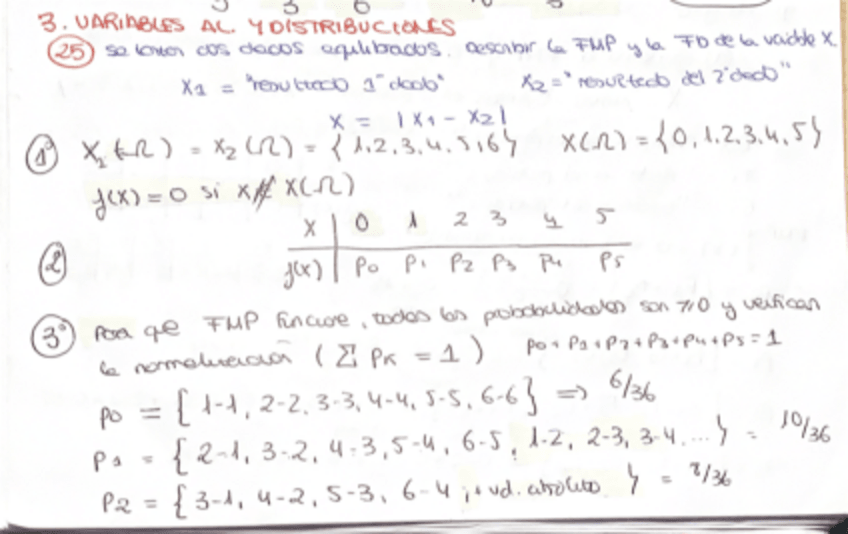 3. VARIABLES AL. Y DISTRIBUCIONES
25 se lanzan dos dados equilibrados. describir la FMP y la FD de la variable X.
X1 = "resultado 1er dado" X2 = "resultado del 2º dado"
X = |X1 - X2|
1º X1(Ω) = X2(Ω) = {1,2,3,4,5,6} X(Ω) = {0,1,2,3,4,5}
f(x) = 0 si x ∉ X(Ω)
X | 0 1 2 3 4 5
2 f(x) | P0 P1 P2 P3 P4 P5
3º Para que FMP funcione, todas las probabilidades son ≥0 y verifican
la normalización (Σ PK = 1) P0+P1+P2+P3+P4+P5=1
P0 = {1-1, 2-2, 3-3, 4-4, 5-5, 6-6} => 6/36
P1 = {2-1, 3-2, 4-3, 5-4, 6-5, 1-2, 2-3, 3-4....} = 10/36
P2 = {3-1, 4-2, 5-3, 6-4, + vd. absoluto } = 8/36